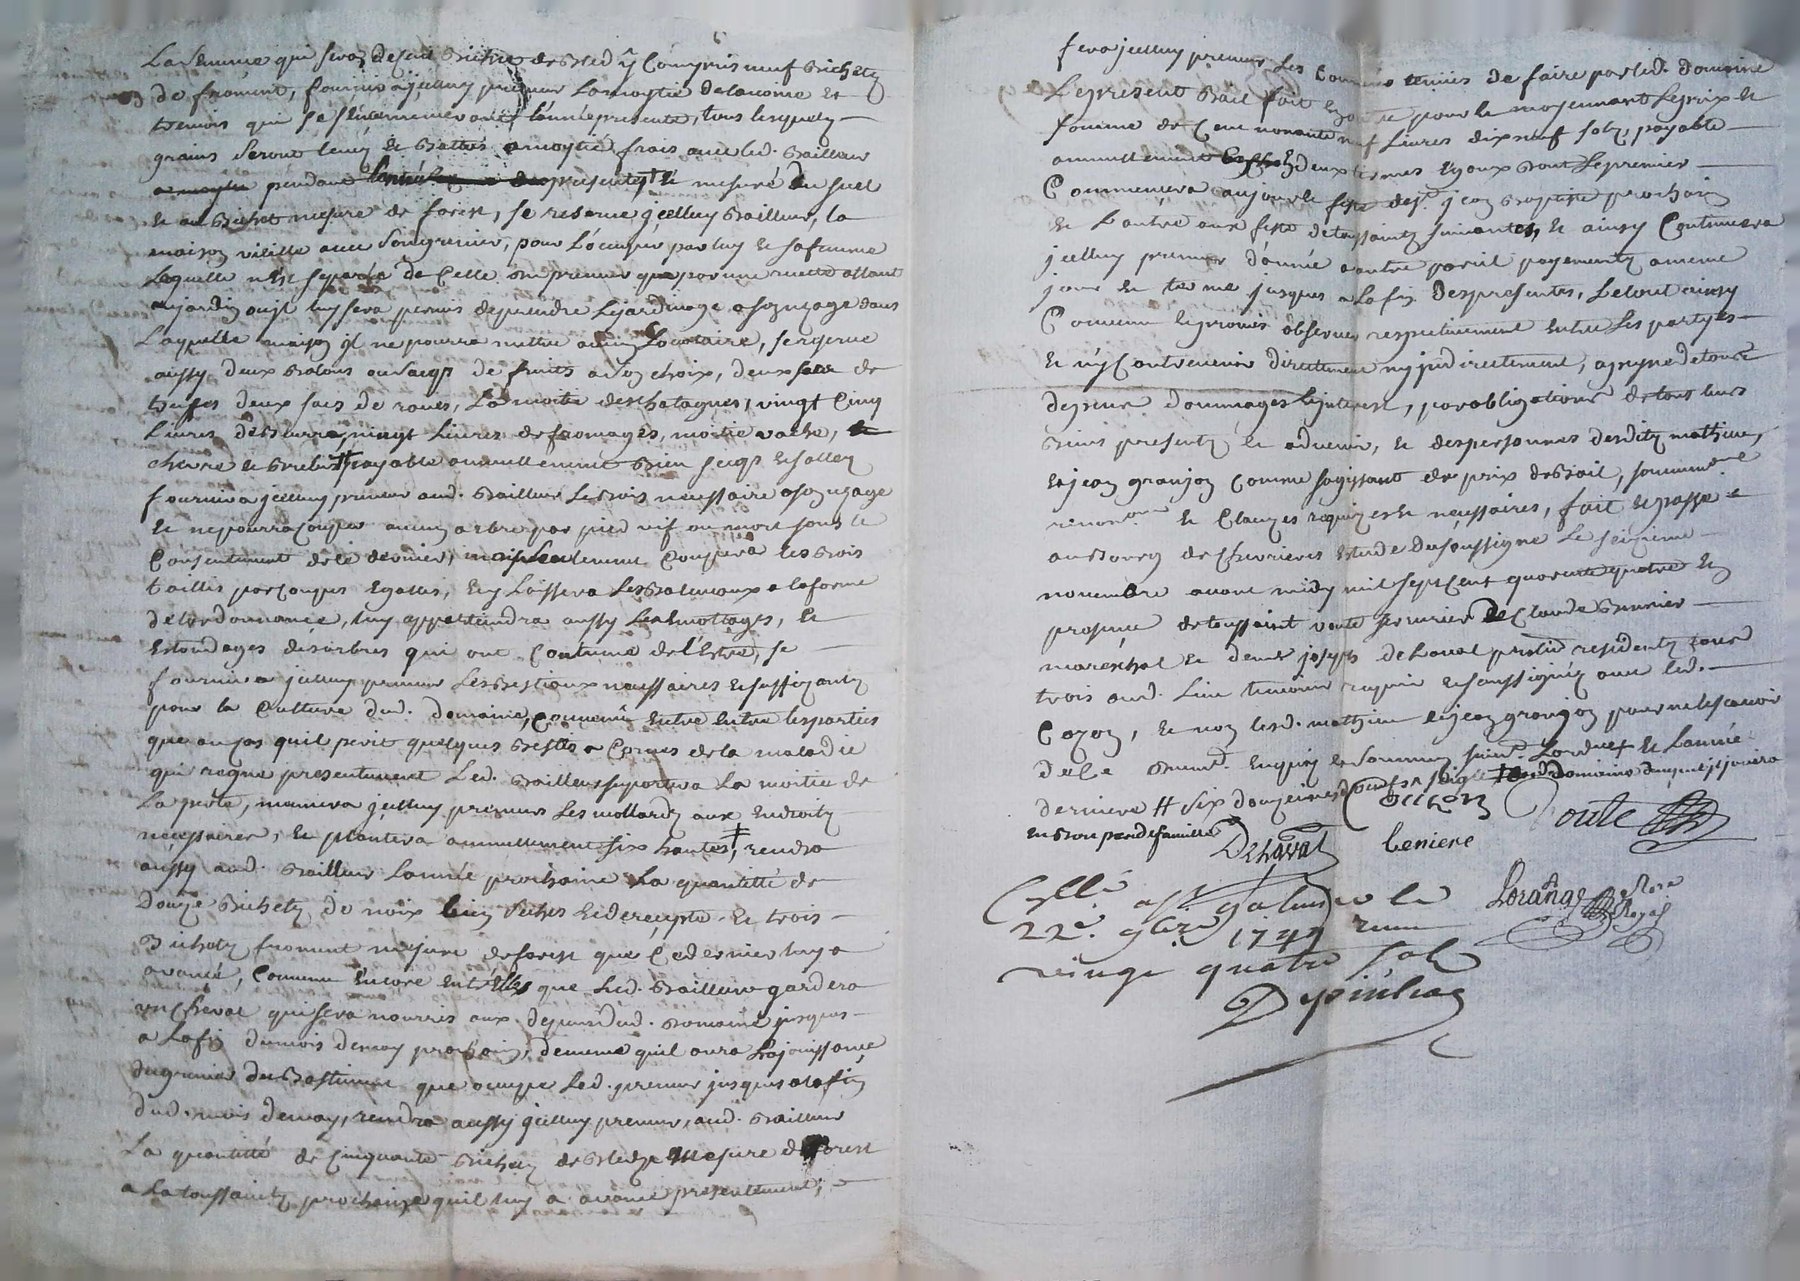 La semence qui sera de sept bichets de bled y compris neuf bichets
de froment, fournira jcelluy preneur la moytié de lavoine et
tremois qui se sémerons l'année presente, tous lesquels
grains seront levez et battus a moytié frais avec led. Bailleur
pendant presentes et mesuré du
et au Bichet mesure de forest, se reserve jcelluy Bailleur, la
maison vieille avec son grenier, pour l'ocuper par luy et sa femme
laquelle n'est separée de celle du preneur que par une ruette allant
au jardin ou jl luy sera permis de prendre le jardinage a son uzage dans
Laquelle maison jl ne pourra mettre aucun Locataire, se reserve
aussy deux de fruits a son choix, deux sacs de
truffes deux sacs de raves, la moitié des chatagnes, vingt cinq
Livres de Burre, vingt Livres de fromages, moitié vache,
chevre et brebis payable annuellement bien secqs et sallez
fournira jcelluy preneur aud. Bailleur le Bois necessaire a son uzage
et ne pourra couper aucun arbre par pied vif ou mort sans le
Consentement de ce dernier, mais seulement coupera les Bois
taillis par coupes egalles, en y laissera les Baliveaux a la forme
de l'ordonnance, luy appartiendra aussy les emottages, et
estondages des arbres qui ont coutume de l'Estre, se
fournira jcelluy preneur les Bestiaux necessaires et suffizants
pour la Culture dud. domaine, convenu entre entre les parties
que au cas quil perit quelques bestes a Cornes de la maladie
qui regne presentement Led. Bailleur suportera La moitié de
La perte, menera jcelluy preneur Les mottards aux endroits
necessaires, et plantera annuellement six hantes, rendra
aussy aud. Bailleur Lannée prochaine La quantitté de
Douze Bichets de noix bien seches et de recepte et trois
Bichets froment mesure de forest que ce dernier luy a
avancé, convenu encore entr'elles que Led. Bailleur gardera
un Cheval qui sera nourris aux depans dud. domaine jusques
a La fin du mois de may prochain, de meme quil aura La jouissance
du grenier du Bastiment que ocupe Led. preneur jusques a la fin
dud. mois de may, rendra aussy jcelluy preneur, aud. Bailleur
La quantitté de Cinquante Bichets de bled mesure de forest
a La toussaints prochaine quil luy a avancé presentement,
sera jcelluy preneur Les tenus de faire par led. domaine
Le present Bail fait en outre pour le moyennant Le prix et
somme de Cent nonante neuf Livres dix neuf sols, payable
annuellement en deux termes egaux dont Le premier
Commencera aujour et feste de st jean Baptiste prochain
et L'autre aux feste de toussaints suivantes, et ainsy Continuera
jcelluy preneur d'année a autre pareil payements a meme
jour et terme jusques a La fin des presentes, Le tout ainsy
Convenu et promis observer respectivement entre Les partyes
et n'y Contrevenir directement ny jndirectement, a peyne de tous
depens dommages et jnterest, par obligations de tous leurs
Biens presents et advenir, et des personnes desdits mathieu,
et jean granjon comme s'agissant de prix de Bail, soumissions
renonons et Clauzes requizes et necessaires, fait et passé
au Bourg de Chevrieres estude du soussigné Le seizieme
novembre avant midy mil sept Cent quarente quatre en
presence de toussaint voute serrurier de Claude Brunier
mareschal et de mr joseph de Laval praticn residents tous
trois aud. Lieu temoins requis et soussignez avec led.
Cozon, et non lesd. mathieu et jean granjon pour ne le scavoir
de ce enquis et sommez
derniere # six douzeines d'oeufs
en Bon pere de famille
Delaval beniere Voute
Collé a st galmier le
22e 9bre 1744 receu
vingt quatre sols